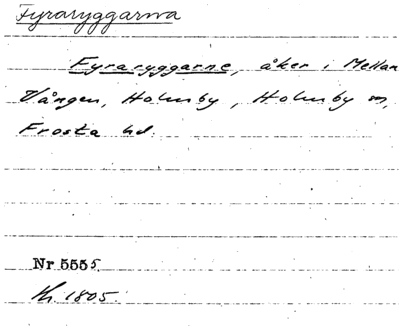 Fyraryggarna
Fyraryggarne, åker i Mellan
Vången, Holmby, Holmby sn,
Frosta hd.
Nr 5555.
Kr. 1805.